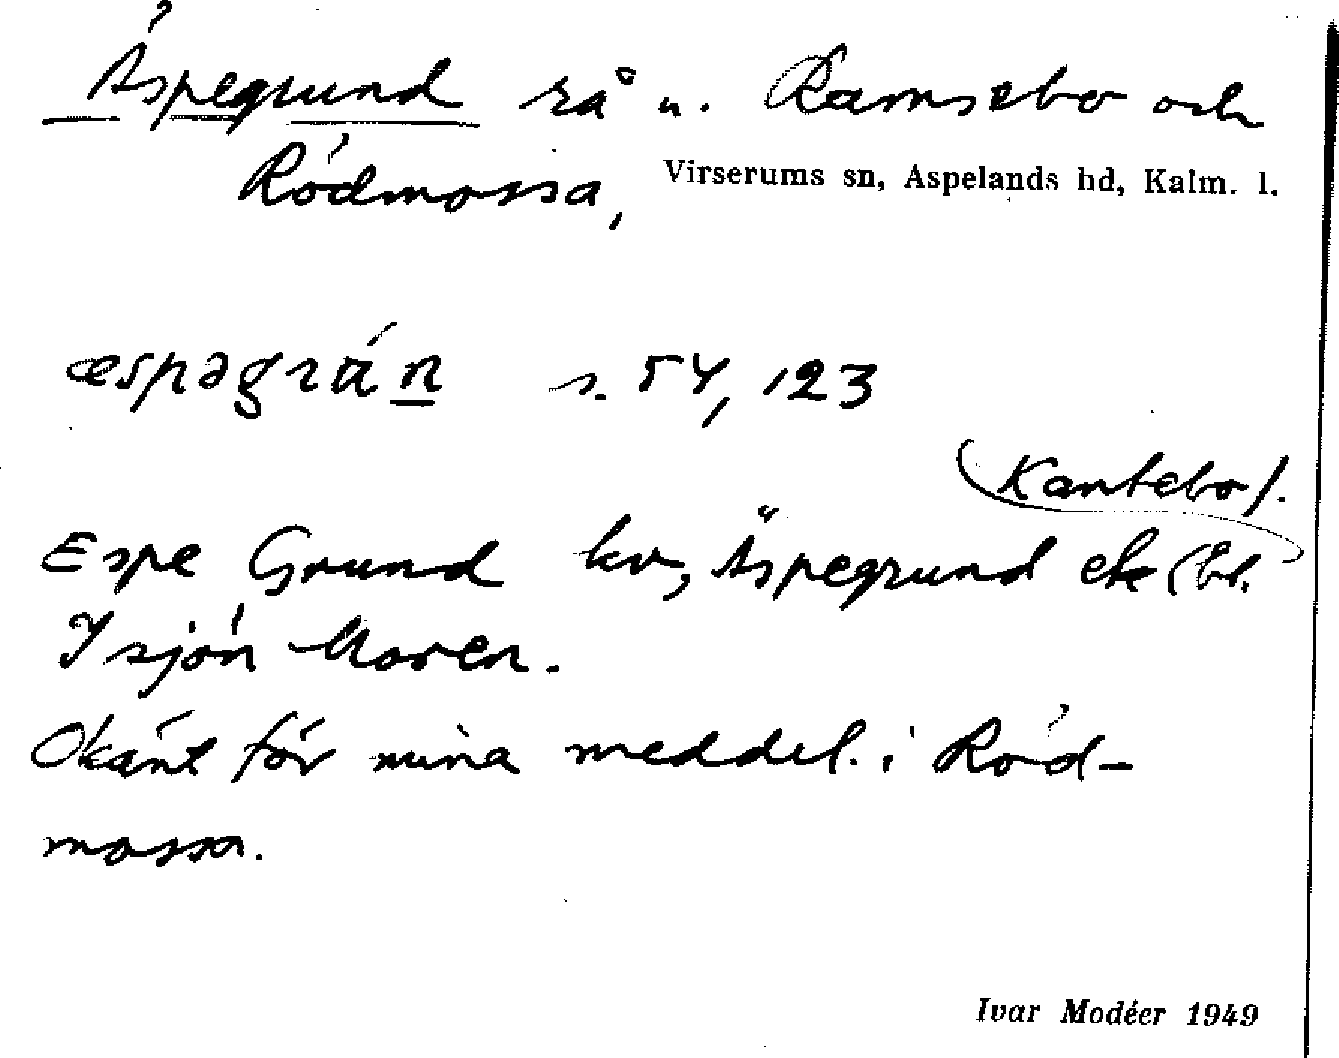 Äspegrund rå u. Ramsebo och
Rödmossa, Virserums sn, Aspelands hd, Kalm. l.
æspəgrán s. 54, 123
Kantebo).
Espe Grund kv, Äspegrund ek (bl.
Isjön Moren.
Okänt för mina meddel. i Röd-
mossa.
Ivar Modéer 1949